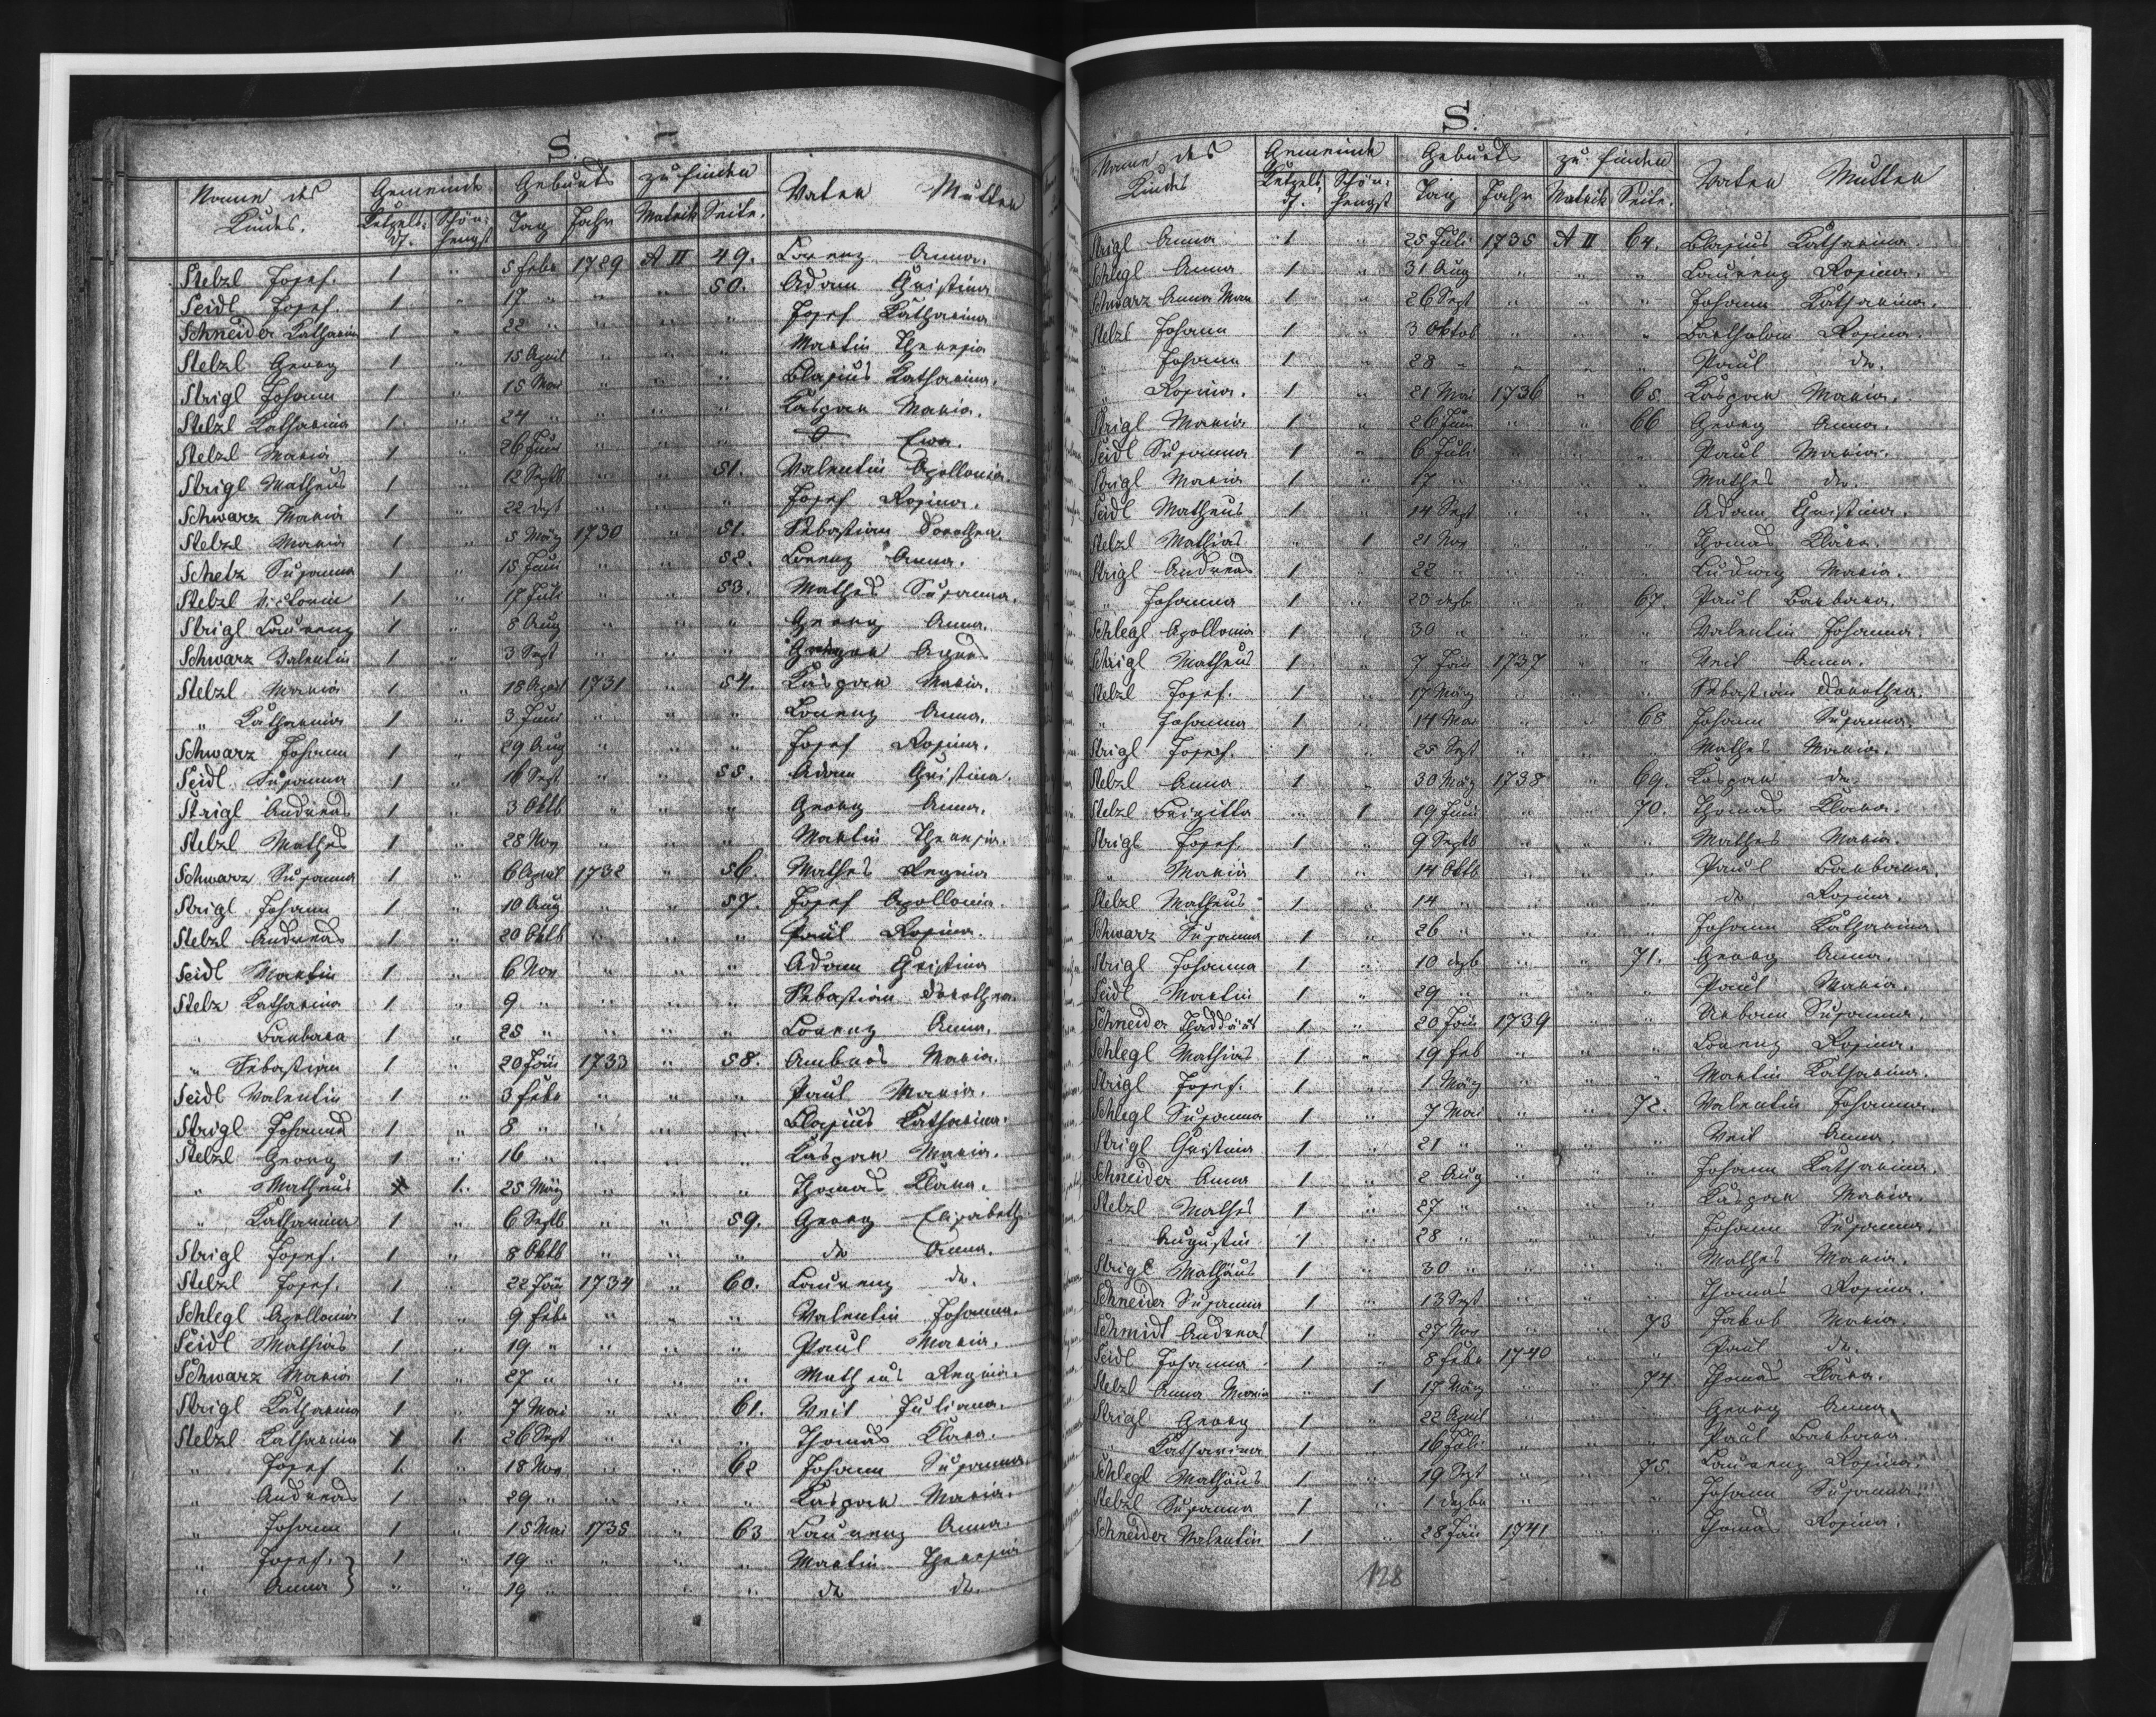 S.
Name des Kindes. Gemeinde Geburts zu finden Vater Mutter
Ketzelsd. Schönhengst Tag Jahr Matrik Seite.
Stelzl Josef. 1 " 5 Febr 1729 A II 49. Lorenz Anna.
Seidl Josef. 1 " 17 " " " 50. Adam Christina
Schneider Katharina 1 " 22 " " " " Josef Katharina
Stelzl Georg 1 " 15 April " " " Martin Theresia
Strigl Johann 1 " 15 Mai " " " Blasius Katharina.
Stelzl Katharina 1 " 24 " " " " Kaspar Maria.
Stelzl Maria 1 " 26 Juni " " " Ewa.
Strigl Matheus 1 " 12 Septb " " 51. Valentin Apollonia.
Schwarz Maria 1 " 22 " " " Josef Rosina.
Stelzl Maria 1 " 5 März 1730 " 51. Sebastian Dorothea.
Schelz Susanna 1 " 15 Juni " " 52. Lorenz Anna.
Stelzl Victorin 1 " 17 Juli " " 53. Mathes Susanna.
Strigl Laurenz 1 " 8 Aug " " " Georg Anna.
Schwarz Valentin 1 " 3 Sept " " " Agnes
Stelzl Maria 1 " 18 April 1731 " 54. Kaspar Maria.
" Katharina 1 " 3 Juni " " " Lorenz Anna.
Schwarz Johann 1 " 29 Aug " " " Josef Rosina.
Seidl Susanna 1 " 16 Sept " " 55. Adam Christina.
Strigl Andreas 1 " 3 Oktb " " " Georg Anna.
Stelzl Mathes 1 " 28 Nov " " " Martin Theresia.
Schwarz Susanna 1 " 6 April 1732 " 56. Mathes Regina
Strigl Johann 1 " 10 Aug " " 57. Josef Apollonia.
Stelzl Andreas 1 " 20 Oktb " " " Paul Rosina.
Seidl Martin 1 " 6 Nov " " " Adam Christina
Stelz Katharina 1 " 9 " " " " Sebastian Dorothea.
" Barbara 1 " 25 " " " " Lorenz Anna.
" Sebastian 1 " 20 Jän 1733 " 58. Ambros Maria.
Seidl Valentin 1 " 3 Febr " " " Paul Maria.
Strigl Johanna 1 " 8 " " " " Blasius Katharina.
Stelzl Georg 1 " 16 " " " " Kaspar Maria.
" Matheus 1. 25 März " " " Thomas Klara.
" Katharina 1 " 6 Septb " " 59. Georg Elisabeth.
Strigl Josef. 1 " 8 Oktb " " " do Anna.
Stelzl Josef. 1 " 22 Jän 1734 " 60. Laurenz do.
Schlegl Apollonia 1 " 9 Febr " " " Valentin Johanna.
Seidl Mathias 1 " 19 " " " " Paul Maria.
Schwarz Maria 1 " 27 " " " " Matheus Regina.
Strigl Katharina 1 " 7 Mai " " 61. Veit Juliana.
Stelzl Katharina 1. 26 Sept " " " Thomas Klara.
" Josef 1. " 18 Nov " " 62 Johann Susanna.
" Andreas 1 " 29 " " " " Kaspar Maria.
" Johann 1 " 15 Mai 1735 " 63 Laurenz Anna.
" Josef. } 1 " 19 " " " " Martin Theresia
" Anna } " " 19 " " " " do do.
S.
Name des Kindes Gemeinde Geburts zu finden Vater Mutter
Ketzelsd. Schönhengst Tag Jahr Matrik Seite.
Strigl Anna 1 " 25 Juli 1735 A II 64. Blasius Katharina.
Schlegl Anna 1 " 31 Aug " " " Laurenz Rosina.
Schwarz Anna Mari 1 " 26 Sept " " " Johann Katharina.
Stelzl Johann 1 " 3 Oktob " " " Bartholom Rosina.
" Johann 1 " 28 " " " " Paul do.
" Rosina. 1 " 21 Mai 1736 " 65. Kaspar Maria.
Strigl Maria 1 " 26 Juni " " 66 Georg Anna.
Seidl Susanna 1 " 6 Juli " " " Paul Maria.
Strigl Maria 1 " 17 " " " " Mathes do.
Seidl Matheus 1 " 14 Sept " " " Adam Christina.
Stelzl Mathias " 1 21 Nov " " " Thomas Klara.
Strigl Andreas 1 " 22 " " " " Ludwig Maria.
" Johanna 1 " 23 dezb " " 67. Paul Barbara.
Schlegl Apollonia 1 " 30 " " " " Valentin Johanna.
Strigl Matheus 1 " 7 Jän 1737 " " Veit Anna.
Stelzl Josef. 1 " 17 März " " " Sebastian Dorothea.
" Johanna 1 " 14 Mai " " 68 Johann Susanna.
Strigl Josef. 1 " 25 Sept " " " Mathes Maria.
Stelzl Anna 1 " 30 März 1738 " 69. Kaspar do.
Stelzl Brigitta " 1 19 Juni " " 70. Thomas Klara.
Strigl Josef. 1 " 9 Septb " " " Mathes Maria.
" Maria 1 " 14 Oktb " " " Paul Barbara.
Stelzl Matheus 1 " 14 " " " " do Rosina.
Schwarz Susanna 1 " 26 " " " " Johann Katharina
Strigl Johanna 1 " 10 dezb " " 71. Georg Anna.
Seidl Martin 1 " 29 " " " " Paul Maria.
Schneider Thaddäus 1 " 20 Jän 1739 " " Urban Susanna.
Schlegl Mathias 1 " 19 Feb " " " Lorenz Rosina.
Strigl Josef. 1 " 1 März " " " Martin Katharina.
Schlegl Susanna 1 " 7 Mai " " 72. Valentin Johanna.
Strigl Christina 1 " 21 " " " " Veit Anna.
Schneider Anna 1 " 2 Aug " " " Johann Katharina.
Stelzl Mathes 1 " 27 " " " " Kaspar Maria.
" Augustin 1 " 28 " " " " Johann Susanna.
Strigl Mathäus 1 " 30 " " " " Mathes Maria.
Schneider Susanna 1 " 13 Sept " " " Thomas Rosina.
Schmidt Andreas 1 " 27 Nov " " 73 Jakob Maria.
Seidl Johanna 1 " 8 Febr 1740 " " Paul do.
Stelzl Anna Maria " 1 17 März " " 74 Thomas Klara.
Strigl Georg 1 " 22 April " " " Georg Anna.
" Katharina 1 " 16 Juli " " " Paul Barbara.
Schlegl Mathäus 1 " 19 Sept " " 75. Laurenz Rosina.
Stelzl Susanna 1 " 1 dezbr " " " Johann Susanna.
Schneider Valentin 1 " 28 Jän 1741 " " Thomas Rosina.
128